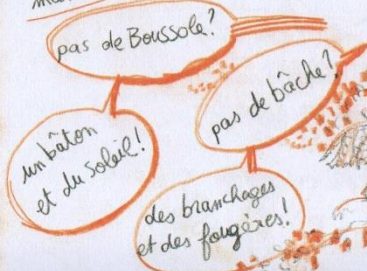 pas de Boussole?
un bâton
et du soleil!
pas de bâche?
des branchages
et des fougères!